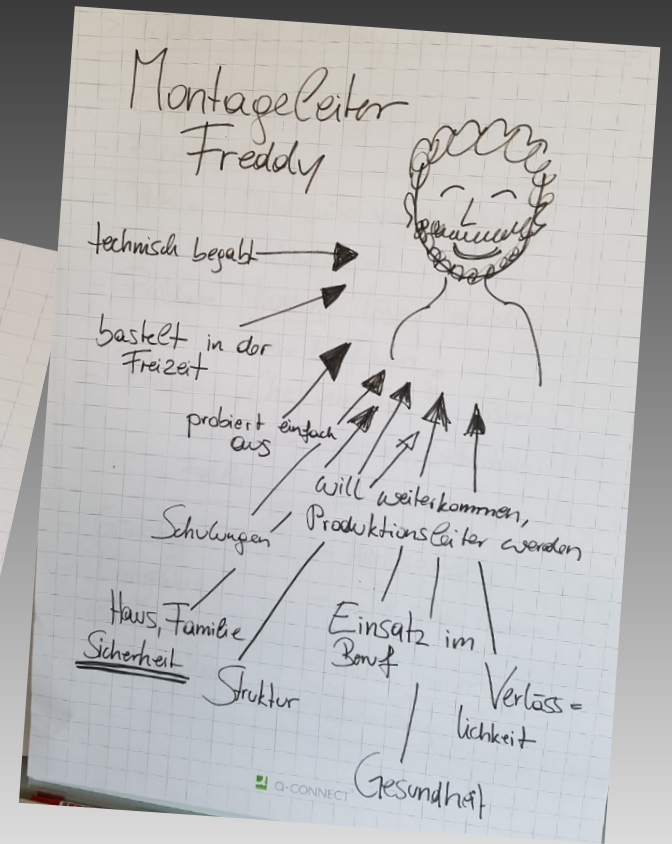 Montageleiter
Freddy
technisch begabt
bastelt in der
Freizeit
probiert einfach
aus
will weiterkommen,
Produktionsleiter werden
Schulungen
Haus, Familie
Sicherheit
Struktur
Einsatz im
Beruf
Verläss=
lichkeit
Gesundheit
Q-CONNECT